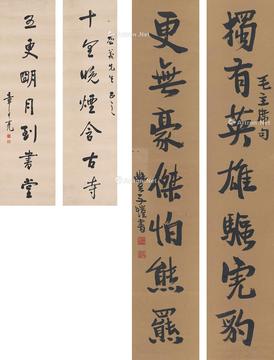 獨有英雄驅虎豹
毛主席句
更無豪傑怕熊羆
豐子愷書
十里晚煙含古寺
五更明月到書堂
章士亮